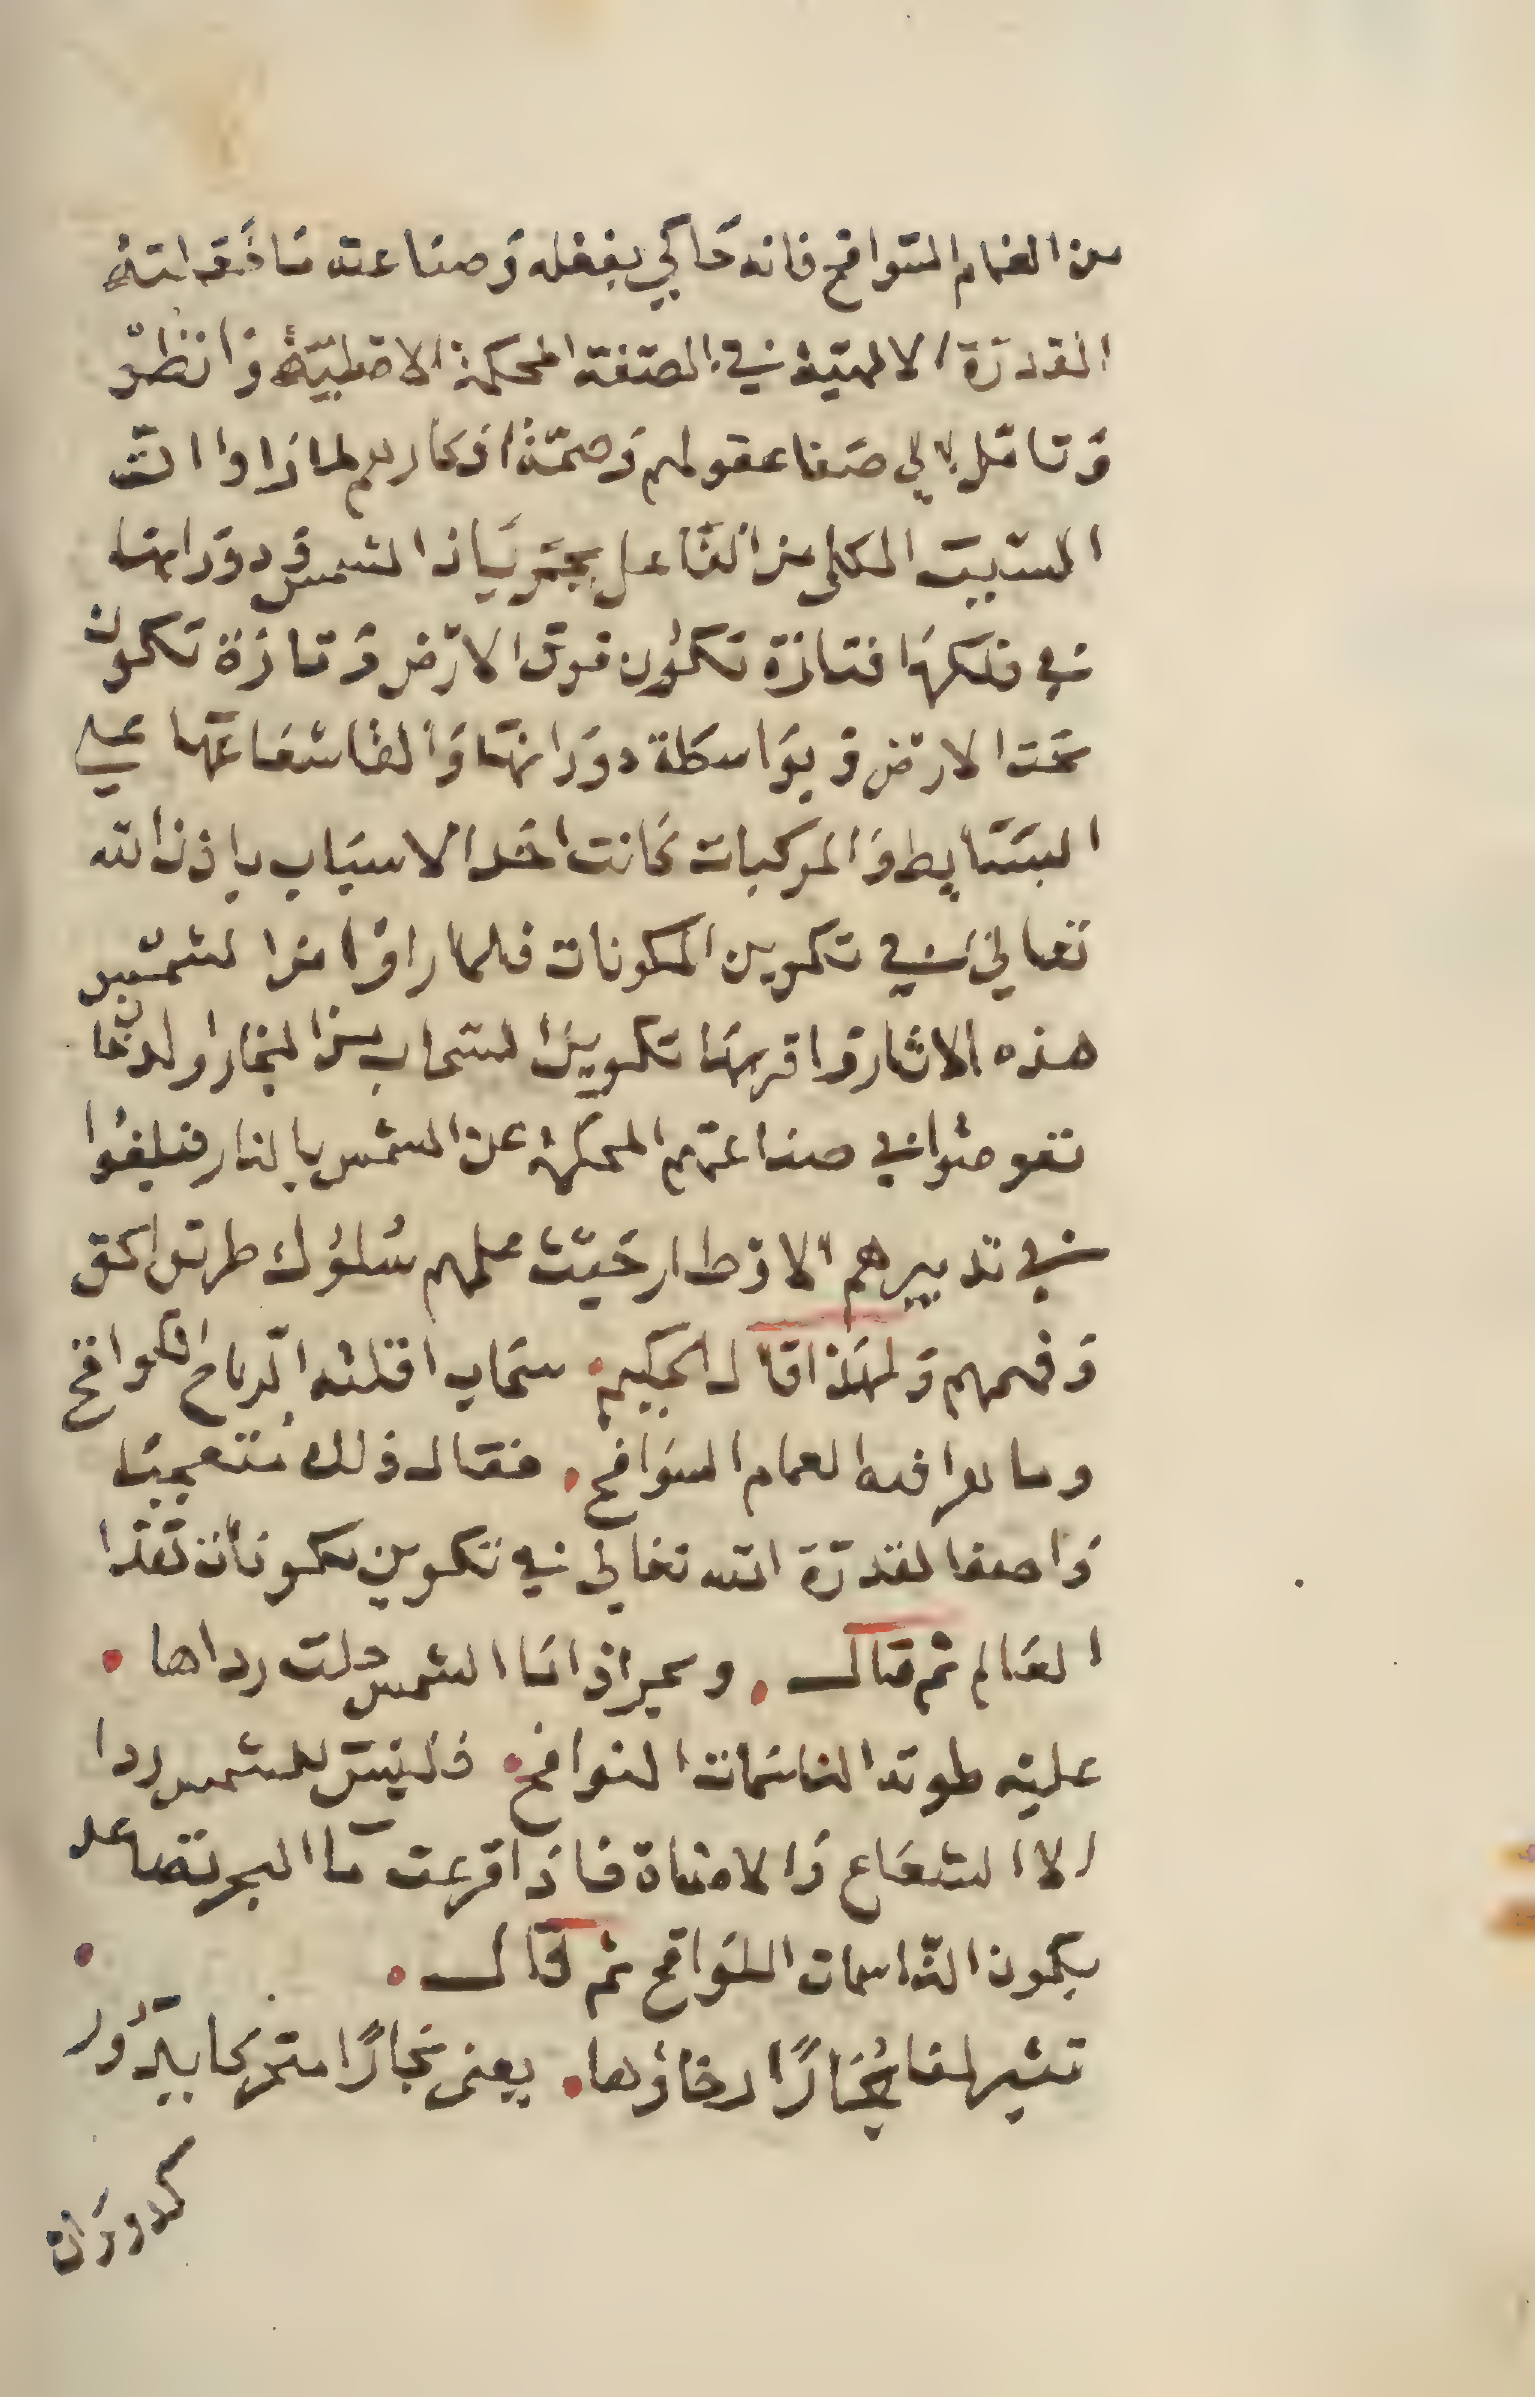 من الغمام السوافح فانه حاكي بفعله وصناعته ما فعلته
القدرة الالهية في الصنعة المحكمة الاصلية وانظر
وتامل الي صفا عقولهم وصحة افكارهم لما راوا ان
السبب الكلي من الفاعل بجريان الشمس ودورانها
في فلكها فتارة تكون فوق الارض وتارة تكون
تحت الارض وبواسطة دورانها والقا شعاعها علي
البسايط والمركبات كانت احد الاسباب باذن الله
تعالي في تكوين المكونات فلما راوا من الشمس
هذه الاثار واقربها تكوين السحاب من البخار والدخان
تعوضوا في صناعتهم المحكمة عن الشمس بالنار فبلغوا
في تدبيرهم الاوطار حيث علمهم سلوك طرق الحق
وفهمهم ولهذا قال الحكيم. سحاب اقلته الرياح اللواقح
وما بعرافيه الغمام السوافح. فقال ذلك متعجبا
واصفا لقدرة الله تعالي في تكوين مكونات هذا
العالم ثم قال. وبحر اذا ما الشمس حلت رداها.
عليه طوته الناسمات النوافح. فليس للشمس ردا
الا الشعاع والاضاة فاذا قرعت ما البحر تصاعد
بكون الناسمات اللواقح ثم قال.
تثير لفا بخارا رخاؤها. يعني بخارا متحركا يدور
كدوران